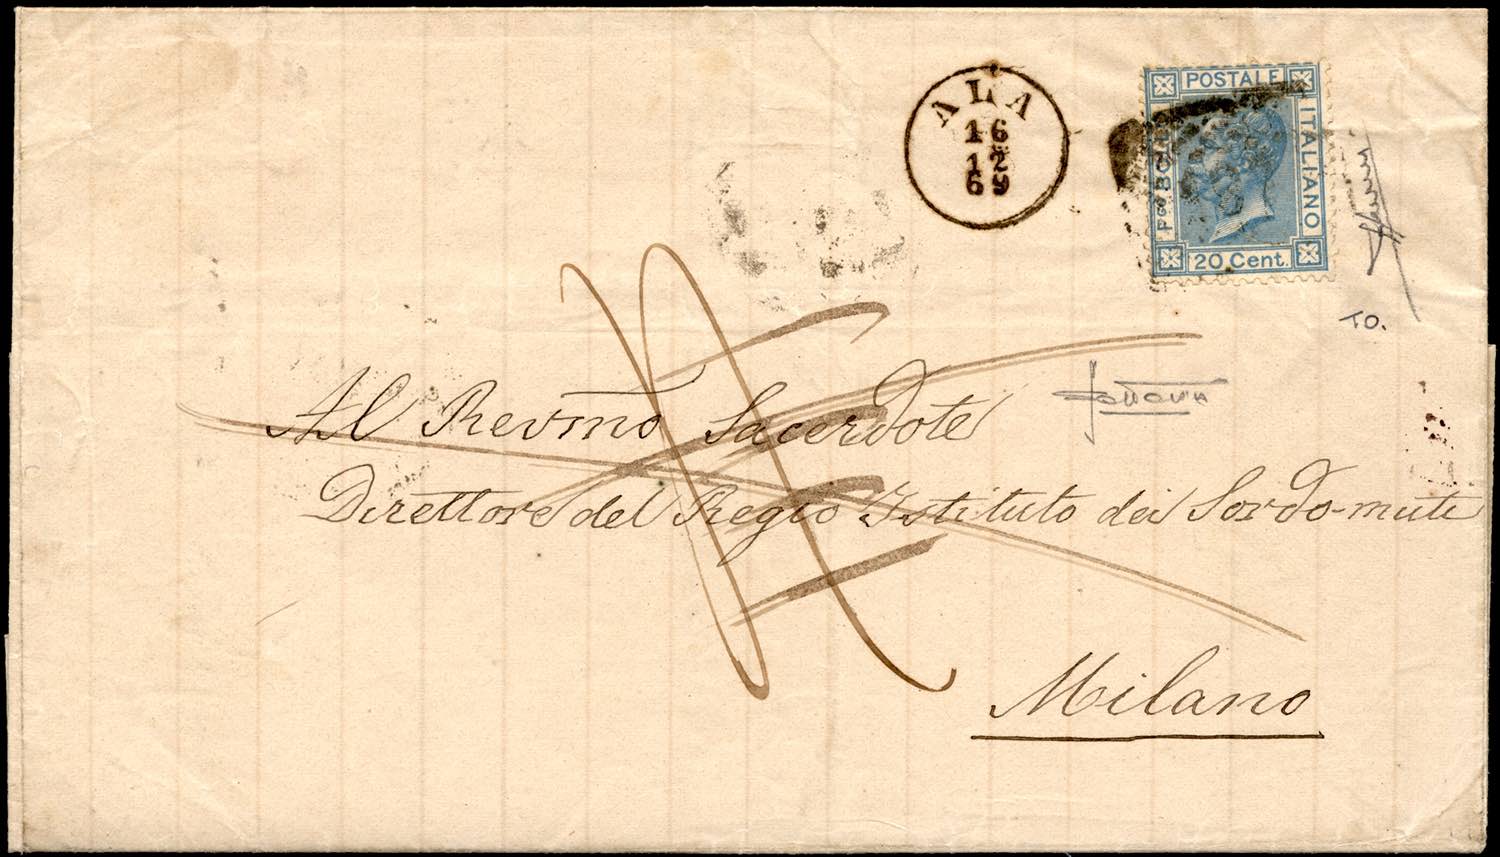 ALA
16
12
69
POSTALE
ITALIANO
BOLLO
20 Cent.
TO.
Al Revmo Sacerdote
Direttore del Regio Istituto dei Sordo-muti
Milano